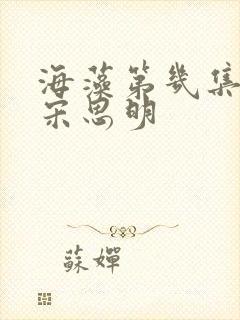 海藻第幾集
宋思明
蘇嬋